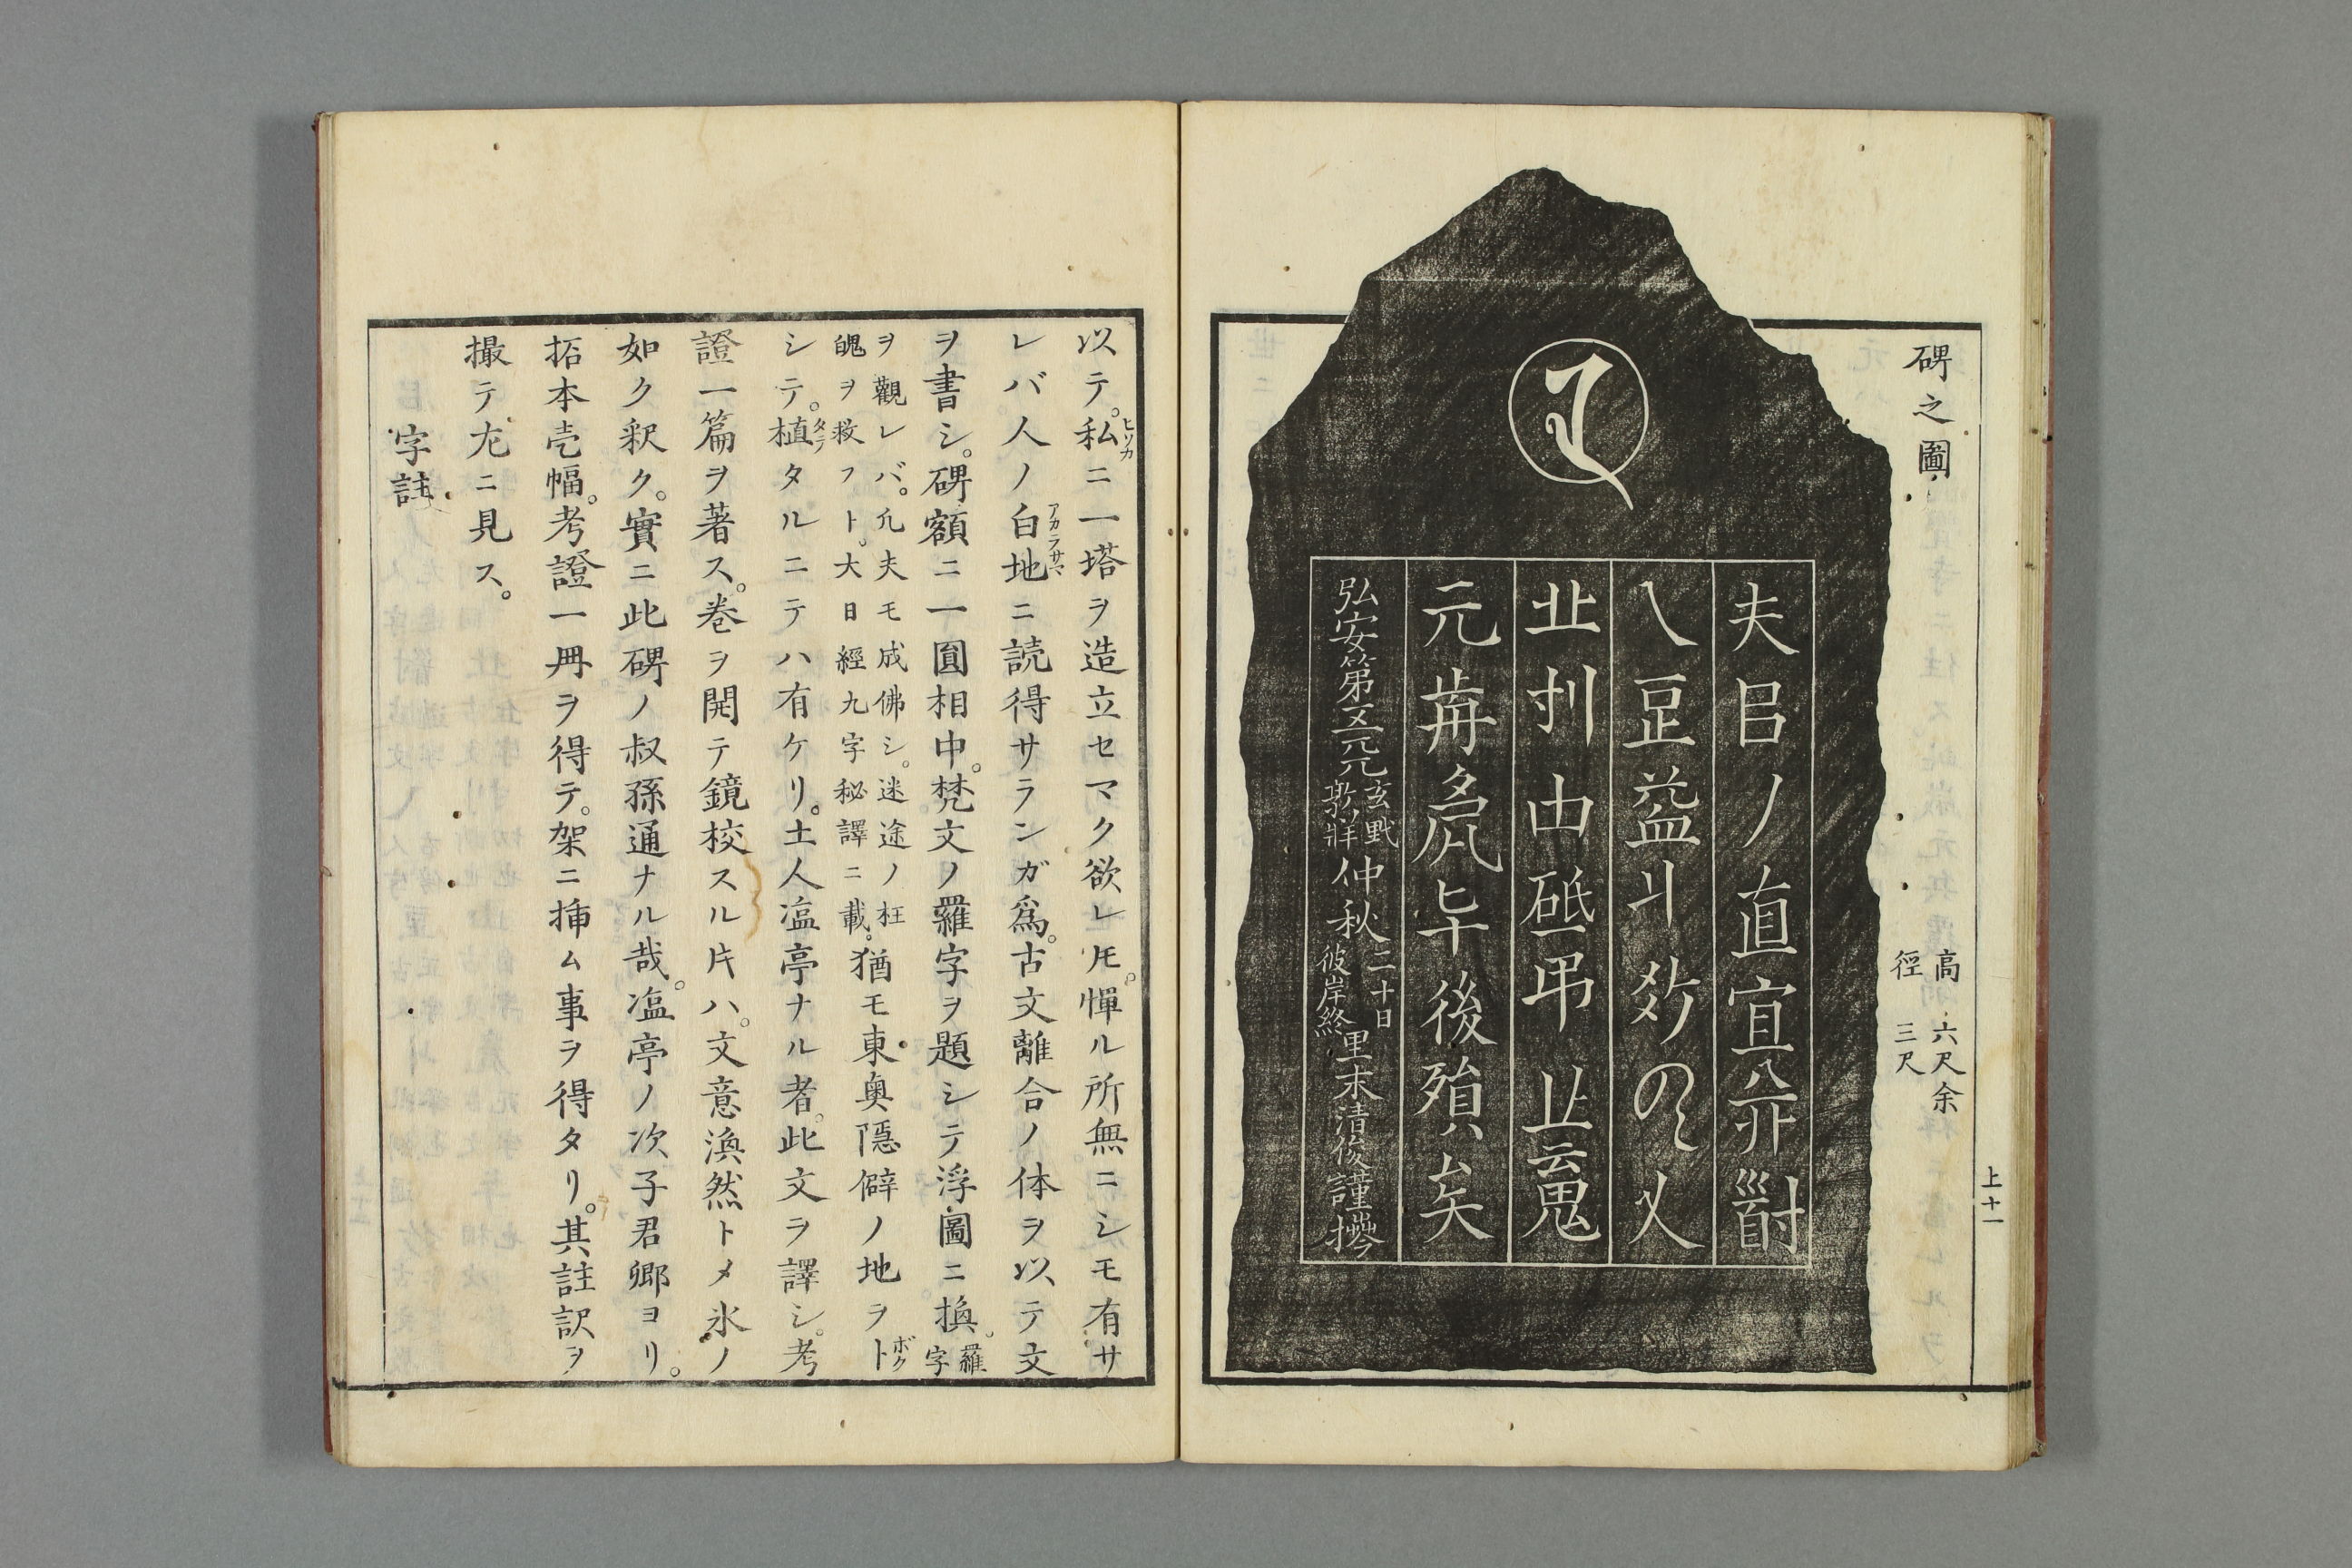 碑之圖
高 六尺余
徑 三尺
上十一
夫㠯ノ直宜
乀豆益丩
北 刋 由 砥 弔
元 歬 後 殞 矣
弘安第五元
玄黓
敦牂
仲秋
二十日
彼岸終
里末清俊謹
以テ。私ニ一塔ヲ造立セマク欲レ𪜈。憚ル所無ニシモ有サ
ヒソカ
レバ人ノ白地ニ読得サランガ爲。古文離合ノ体ヲ以テ文
アカラサマ
ヲ書シ。碑額ニ一圓相中。梵文ノ羅字ヲ題シテ浮圖ニ換。
羅字
ヲ觀レバ。凢夫モ成佛シ。迷途ノ枉
魄ヲ救フト。大日經九字秘譯ニ載。
猶モ東奥隱僻ノ地ヲト
ボク
シテ。植タルニテハ有ケリ。土人塩亭ナル者。此文ヲ譯シ。考
タテ
證一篇ヲ著ス。巻ヲ開テ鏡校スル𪜈ハ。文意渙然トメ氷ノ
如ク釈ク。實ニ此碑ノ叔孫通ナル哉。塩亭ノ次子君卿ヨリ。
拓本壱幅。考證一冊ヲ得テ。架ニ挿ム事ヲ得タリ。其註訳ヲ
撮テ左ニ見ス。
字註